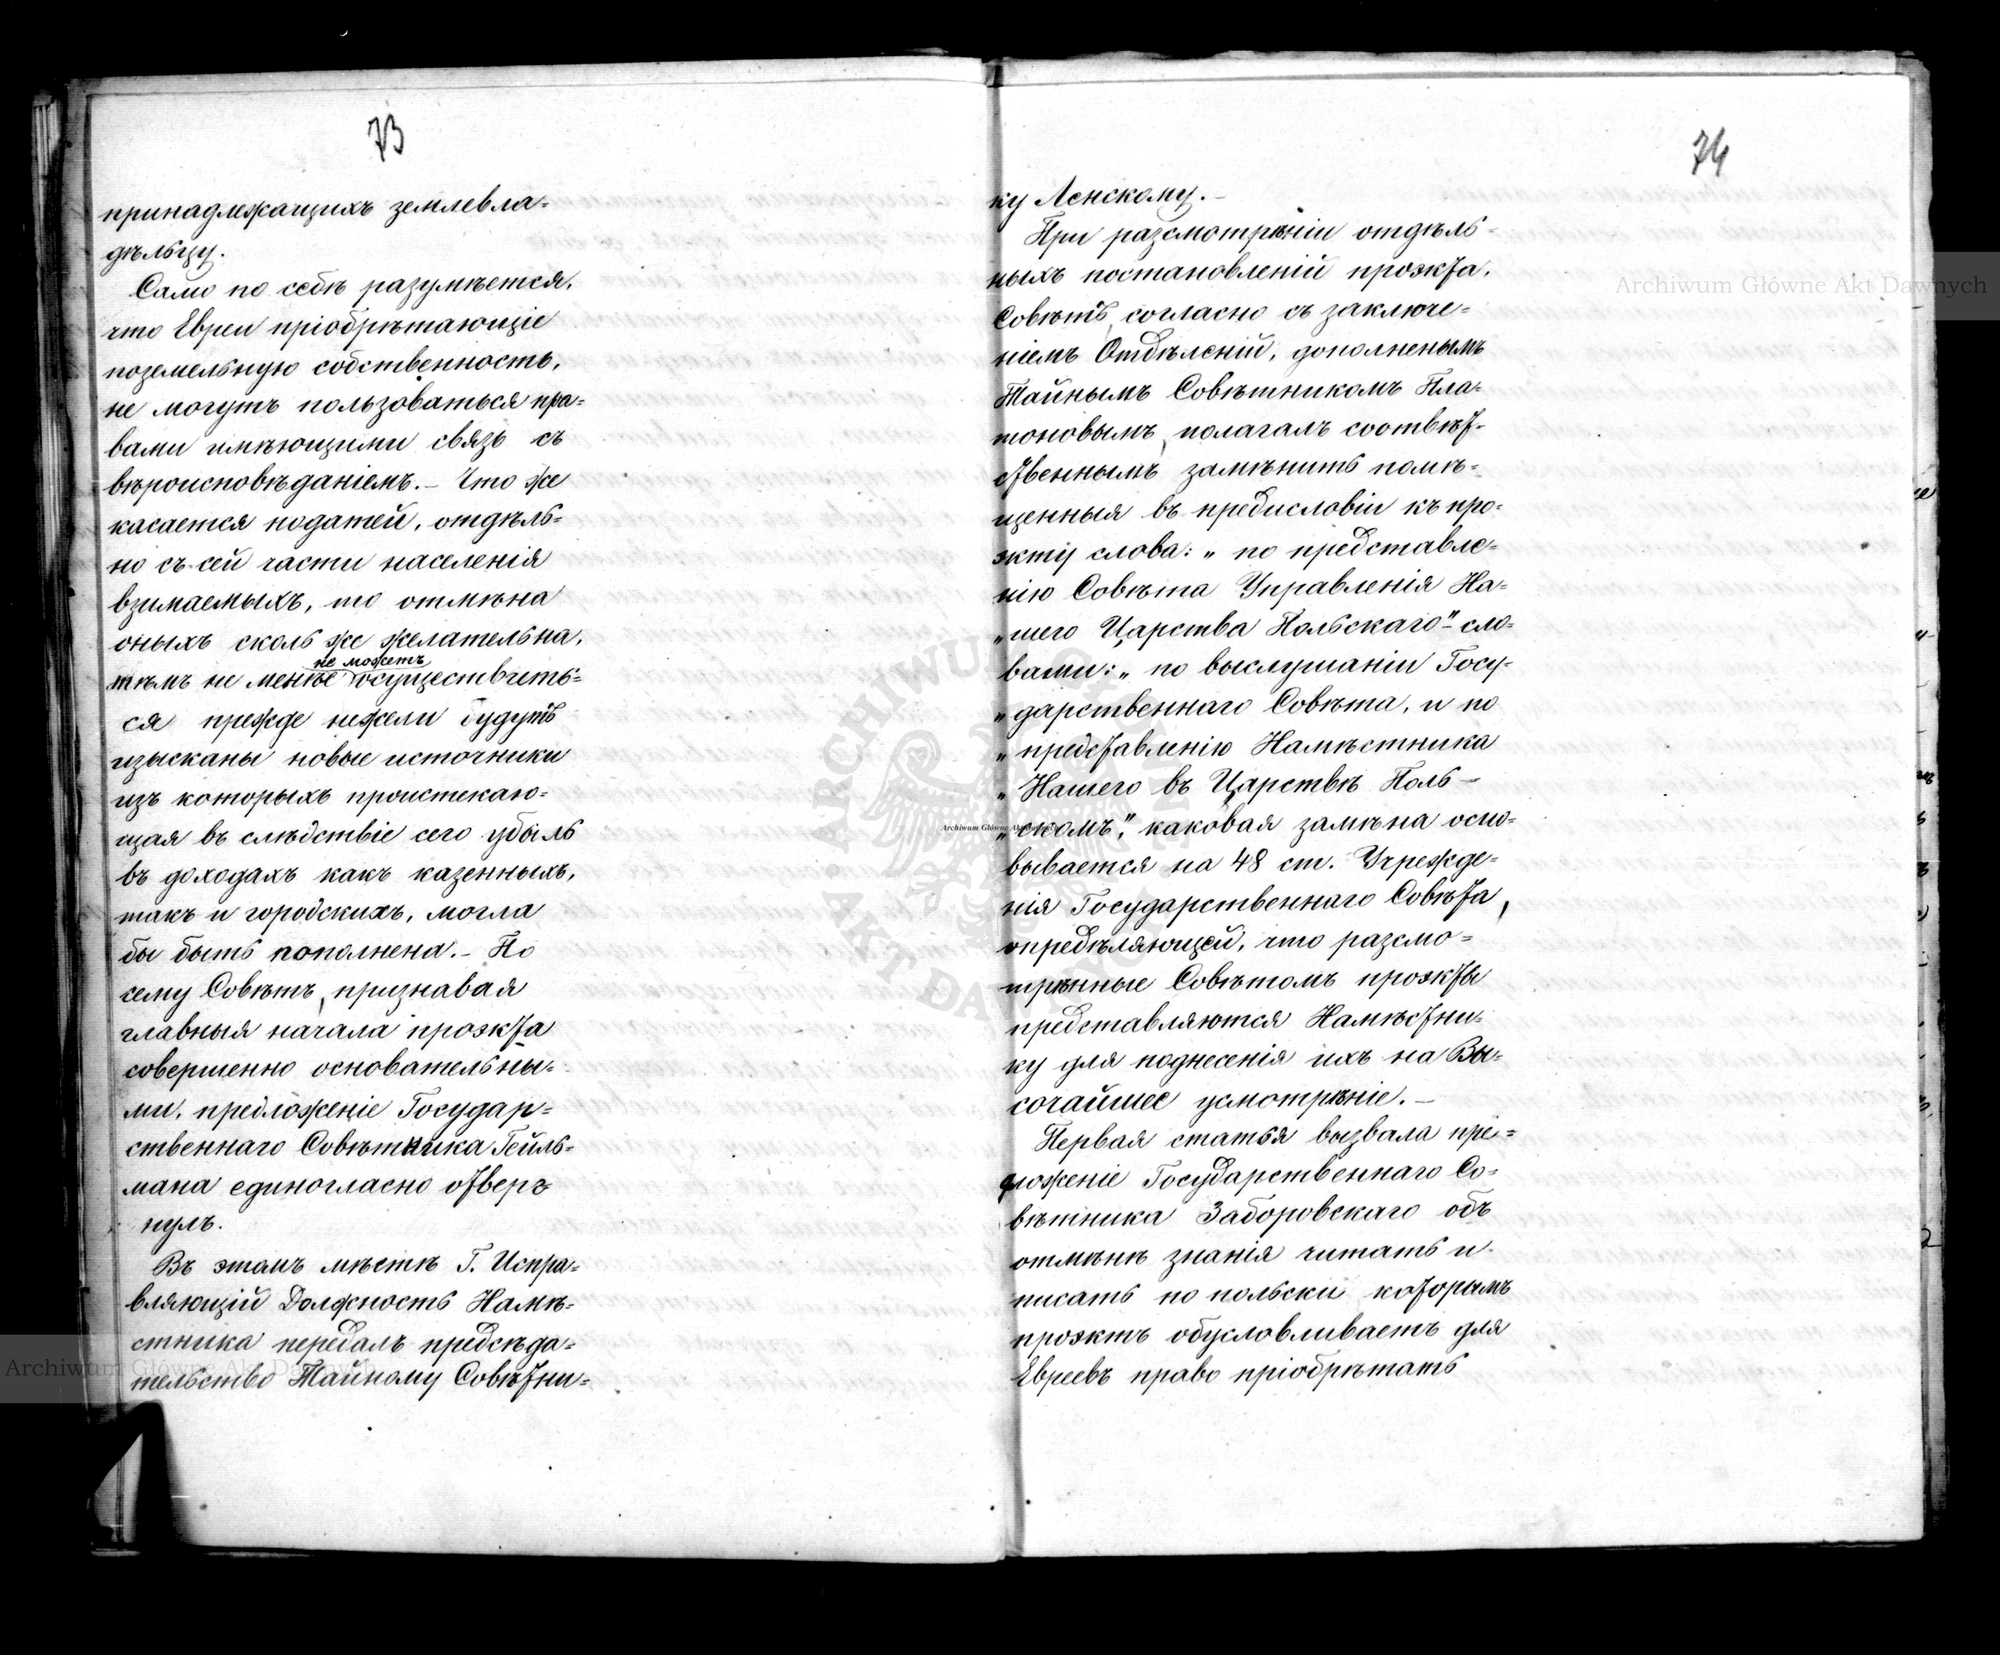 73
принадлежащихъ землевла-
дѣльцу.
Само по себѣ разумѣется,
что Евреи пріобрѣтающіе
поземельную собственность,
не могутъ пользоваться пра-
вами имѣющими связь съ
вѣроисповѣданіемъ. – Что же
касается податей, отдѣль-
но съ сей части населенія
взимаемыхъ, то отмѣна
оныхъ сколь же желательна,
не можетъ
тѣмъ не менѣе осуществить-
ся прежде нежели будутъ
изысканы новые источники
изъ которыхъ проистекаю-
щая въ слѣдствіе сего убыль
въ доходахъ какъ казенныхъ,
такъ и городскихъ, могла
бы быть пополнена. – По
сему Совѣтъ, признавая
главныя начала проэкта
совершенно основательны-
ми, предложеніе Государ-
ственнаго Совѣтника Гейль-
мана единогласно отверг-
нулъ.
Въ этомъ мѣстѣ Г. Испра-
вляющій Должность Намѣ-
стника передалъ предсѣда-
тельство Тайному Совѣтни-
74
ку Ленскому. –
При разсмотрѣніи отдѣль-
ныхъ постановленій проэкта,
Совѣтъ, согласно съ заключе-
ніемъ Отдѣленій, дополненымъ
Тайнымъ Совѣтникомъ Пла-
тоновымъ, полагалъ соотвѣт-
ственнымъ замѣнить помѣ-
щенныя въ предисловіи къ про-
экту слова: „ по представле-
нію Совѣта Управленія На-
„шего Царства Польскаго" – сло-
вами: „ по выслушаніи Госу-
„дарственнаго Совѣта, и по
„представленію Намѣстника
„Нашего въ Царствѣ Поль-
„скомъ", каковая замѣна осно-
вывается на 48 ст. Учрежде-
нія Государственнаго Совѣта,
опредѣляющей, что разсмо-
трѣнные Совѣтомъ проэкты
представляются Намѣстни-
ку для поднесенія ихъ на Вы-
сочайшее усмотрѣніе. –
Первая статья вызвала пре-
дложеніе Государственнаго Со-
вѣтника Заборовскаго объ
отмѣнѣ знанія читать и
писать по польски которымъ
проэктъ обусловливаетъ для
Евреевъ право пріобрѣтать
Archiwum Główne Akt Dawnych
Archiwum Główne Akt Dawnych
Archiwum Główne Akt Dawnych